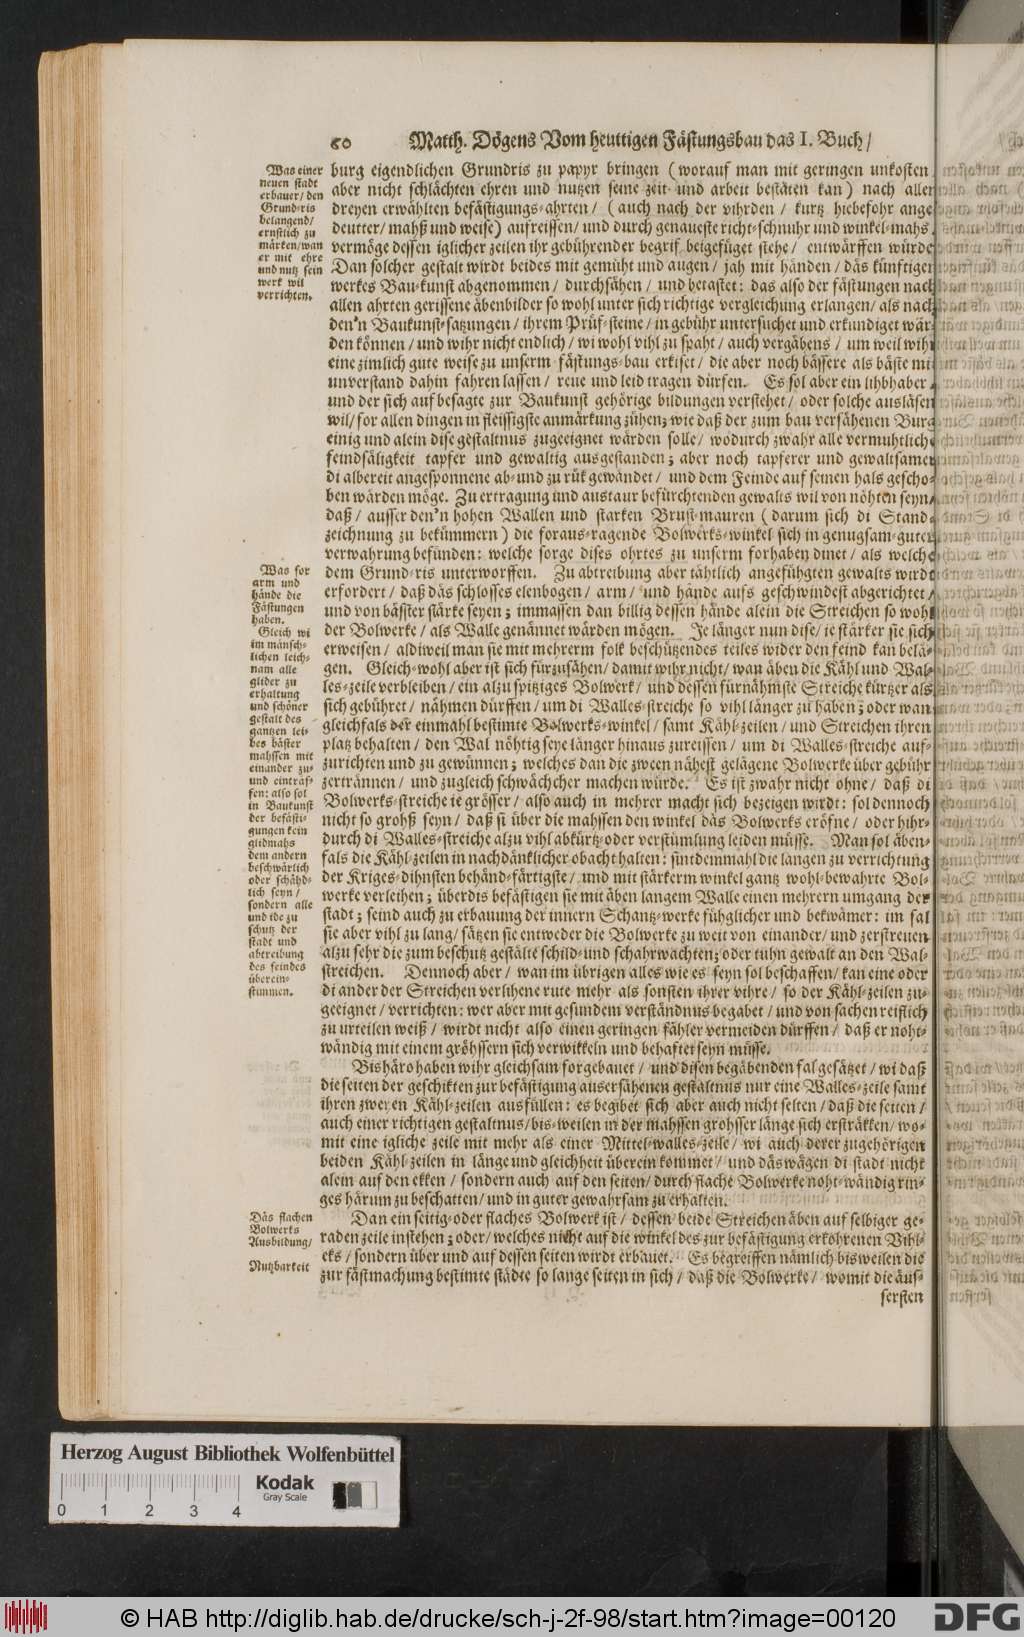 60 Matth. Dögens Vom heuttigen Fästungsbau das I. Buch /
Was einer
neuen stadt
erbauer / den
Grund-ris
belangend /
ernstlich zu
märken / wan
er mit ehre
und nutz sein
werk wil
verrichten.
burg eigendlichen Grundris zu papyr bringen (worauf man mit geringen unkosten
aber nicht schlächten ehren und nutzen seine zeit und arbeit bestäten kan) nach allen
dreyen erwählten befästigungs-ahrten / (auch nach der vihrden / kurtz hiebefohr ange
deutter / mahß und weise) aufreissen / und durch genaueste richt-schnuhr und winkel-mahs
vermöge dessen iglicher zeilen ihr gebührender begrif beigefüget stehe / entwärffen würde
Dan solcher gestalt wirdt beides mit gemüht und augen / jah mit händen / däs künftigen
werkes Bau-kunst abgenommen / durchsähen / und betastet: das also der fästungen nach
allen ahrten gerissene äbenbilder so wohl unter sich richtige vergleichung erlangen / als nach
den'n Baukunst-satzungen / ihrem Prüf-steine / in gebühr untersuchet und erkundiget wär-
den können / und wihr nicht endlich / wi wohl vihl zu spaht / auch vergäbens / um weil wihr
eine zimlich gute weise zu unserm fästungs-bau erkiset / die aber noch bässere als bäste mit
unverstand dahin fahren lassen / reue und leid tragen dürfen. Es sol aber ein lihbhaber
und der sich auf besagte zur Baukunst gehörige bildungen verstehet / oder solche ausläsen
wil / for allen dingen in fleissigste anmärkung zühen; wie daß der zum bau versähenen Burg
einig und alein dise gestaltnus zugeeignet wärden solle / wodurch zwahr alle vermuhtliche
feindsäligkeit tapfer und gewaltig ausgestanden; aber noch tapferer und gewaltsamer
di albereit angesponnene ab- und zu rük gewändet / und dem Feinde auf seinen hals gescho-
ben wärden möge. Zu ertragung und austaur befürchtenden gewalts wil von nöhten seyn /
daß / ausser den'n hohen Wallen und starken Brust-mauren (darum sich di Stand-
zeichnung zu bekümmern) die foraus-ragende Bolwerks-winkel sich in genugsam-guter
verwahrung befünden: welche sorge dises ohrtes zu unserm forhaben dinet / als welche
dem Grund-ris unterworffen. Zu abtreibung aber tähtlich angefühgten gewalts wirdt
erfordert / daß däs schlosses elenbogen / arm / und hände aufs geschwindest abgerichtet /
und von bässter stärke seyen; immassen dan billig dessen hände alein die Streichen so wohl
der Bolwerke / als Walle genännet wärden mögen. Je länger nun dise / ie stärker sie sich
erweisen / aldiweil man sie mit mehrerm folk beschützendes teiles wider den feind kan belä-
gen. Gleich-wohl aber ist sich fürzusähen / damit wihr nicht / wan äben die Kähl und Wal-
les-zeile verbleiben / ein alzu spitziges Bolwerk / und dessen fürnähmste Streiche kürtzer als
sich gebühret / nähmen dürffen / um di Walles-streiche so vihl länger zu haben; oder wan
gleichfals der einmahl bestimte Bolwerks-winkel / samt Kähl-zeilen / und Streichen ihren
platz behalten / den Wal nöhtig seye länger hinaus zureissen / um di Walles-streiche auf-
zurichten und zu gewünnen; welches dan die zween nähest gelägene Bolwerke über gebühr
zertrännen / und zugleich schwächcher machen würde. Es ist zwahr nicht ohne / daß di
Bolwerks-streiche ie grösser / also auch in mehrer macht sich bezeigen wirdt: sol dennoch
nicht so grohß seyn / daß si über die mahssen den winkel däs Bolwerks eröfne / oder hihr-
durch di Walles-streiche alzu vihl abkürtz- oder verstümlung leiden müsse. Man sol äben-
fals die Kähl-zeilen in nachdänklicher obacht halten: sintdemmahl die langen zu verrichtung
der Kriges-dihnsten behänd-färtigste / und mit stärkerm winkel gantz wohl-bewahrte Bol-
werke verleihen; überdis befästigen sie mit äben langem Walle einen mehrern umgang der
stadt; seind auch zu erbauung der innern Schantz-werke fühglicher und bekwämer: im fal
sie aber vihl zu lang / sätzen sie entweder die Bolwerke zu weit von einander / und zerstreuen
alzu sehr die zum beschutz gestälte schild- und schahrwachten; oder tuhn gewalt an den Wal-
streichen. Dennoch aber / wan im übrigen alles wie es seyn sol beschaffen / kan eine oder
di ander der Streichen verlihene rute mehr als sonsten ihrer vihre / so der Kähl-zeilen zu-
geeignet / verrichten: wer aber mit gesundem verständnus begabet / und von sachen reiflich
zu urteilen weiß / wirdt nicht also einen geringen fähler vermeiden dürffen / daß er noht-
wändig mit einem gröhssern sich verwikkeln und behaftet seyn müsse.
Was for
arm und
hände die
Fästungen
haben.
Gleich wi
im mänsch-
lichen leich-
nam alle
glider zu
erhaltung
und schöner
gestalt des
gantzen lei-
bes bäster
mahssen mit
einander zu-
und eintraf-
fen: also sol
in Baukunst
der befästi-
gungen kein
glidmahs
dem andern
beschwärlich
oder schähd-
lich seyn /
sondern alle
und ide zu
schutz der
stadt und
abtreibung
des feindes
überein-
stimmen.
Bishäro haben wihr gleichsam forgebauet / und disen begäbenden fal gesätzet / wi daß
die seiten der geschikten zur befästigung ausersähenen gestaltnus nur eine Walles-zeile samt
ihren zweyen Kähl-zeilen ausfüllen: es begibet sich aber auch nicht selten / daß die seiten /
auch einer richtigen gestaltnus / bis-weilen in der mahssen grohsser länge sich ersträkken / wo-
mit eine igliche zeile mit mehr als einer Mittel-walles-zeile / wi auch derer zugehörigen
beiden Kähl-zeilen in länge und gleichheit überein kommet / und däswägen di stadt nicht
alein auf den ekken / sondern auch auf den seiten / durch flache Bolwerke noht-wändig rin-
ges härum zu beschatten / und in guter gewahrsam zu erhalten.
Däs flachen
Bolwerks
Ausbildung /
Nutzbarkeit
Dan ein seitig- oder flaches Bolwerk ist / dessen beide Streichen äben auf selbiger ge-
raden zeile instehen; oder / welches nicht auf die winkel des zur befästigung erkohrenen Vihl-
eks / sondern über und auf dessen seiten wirdt erbauet. Es begreiffen nämlich bisweilen die
zur fästmachung bestimte städte so lange seiten in sich / daß die Bolwerke / womit die äus-
sersten
Herzog August Bibliothek Wolfenbüttel
Kodak
Gray Scale
0 1 2 3 4
© HAB http://diglib.hab.de/drucke/sch-j-2f-98/start.htm?image=00120
DFG